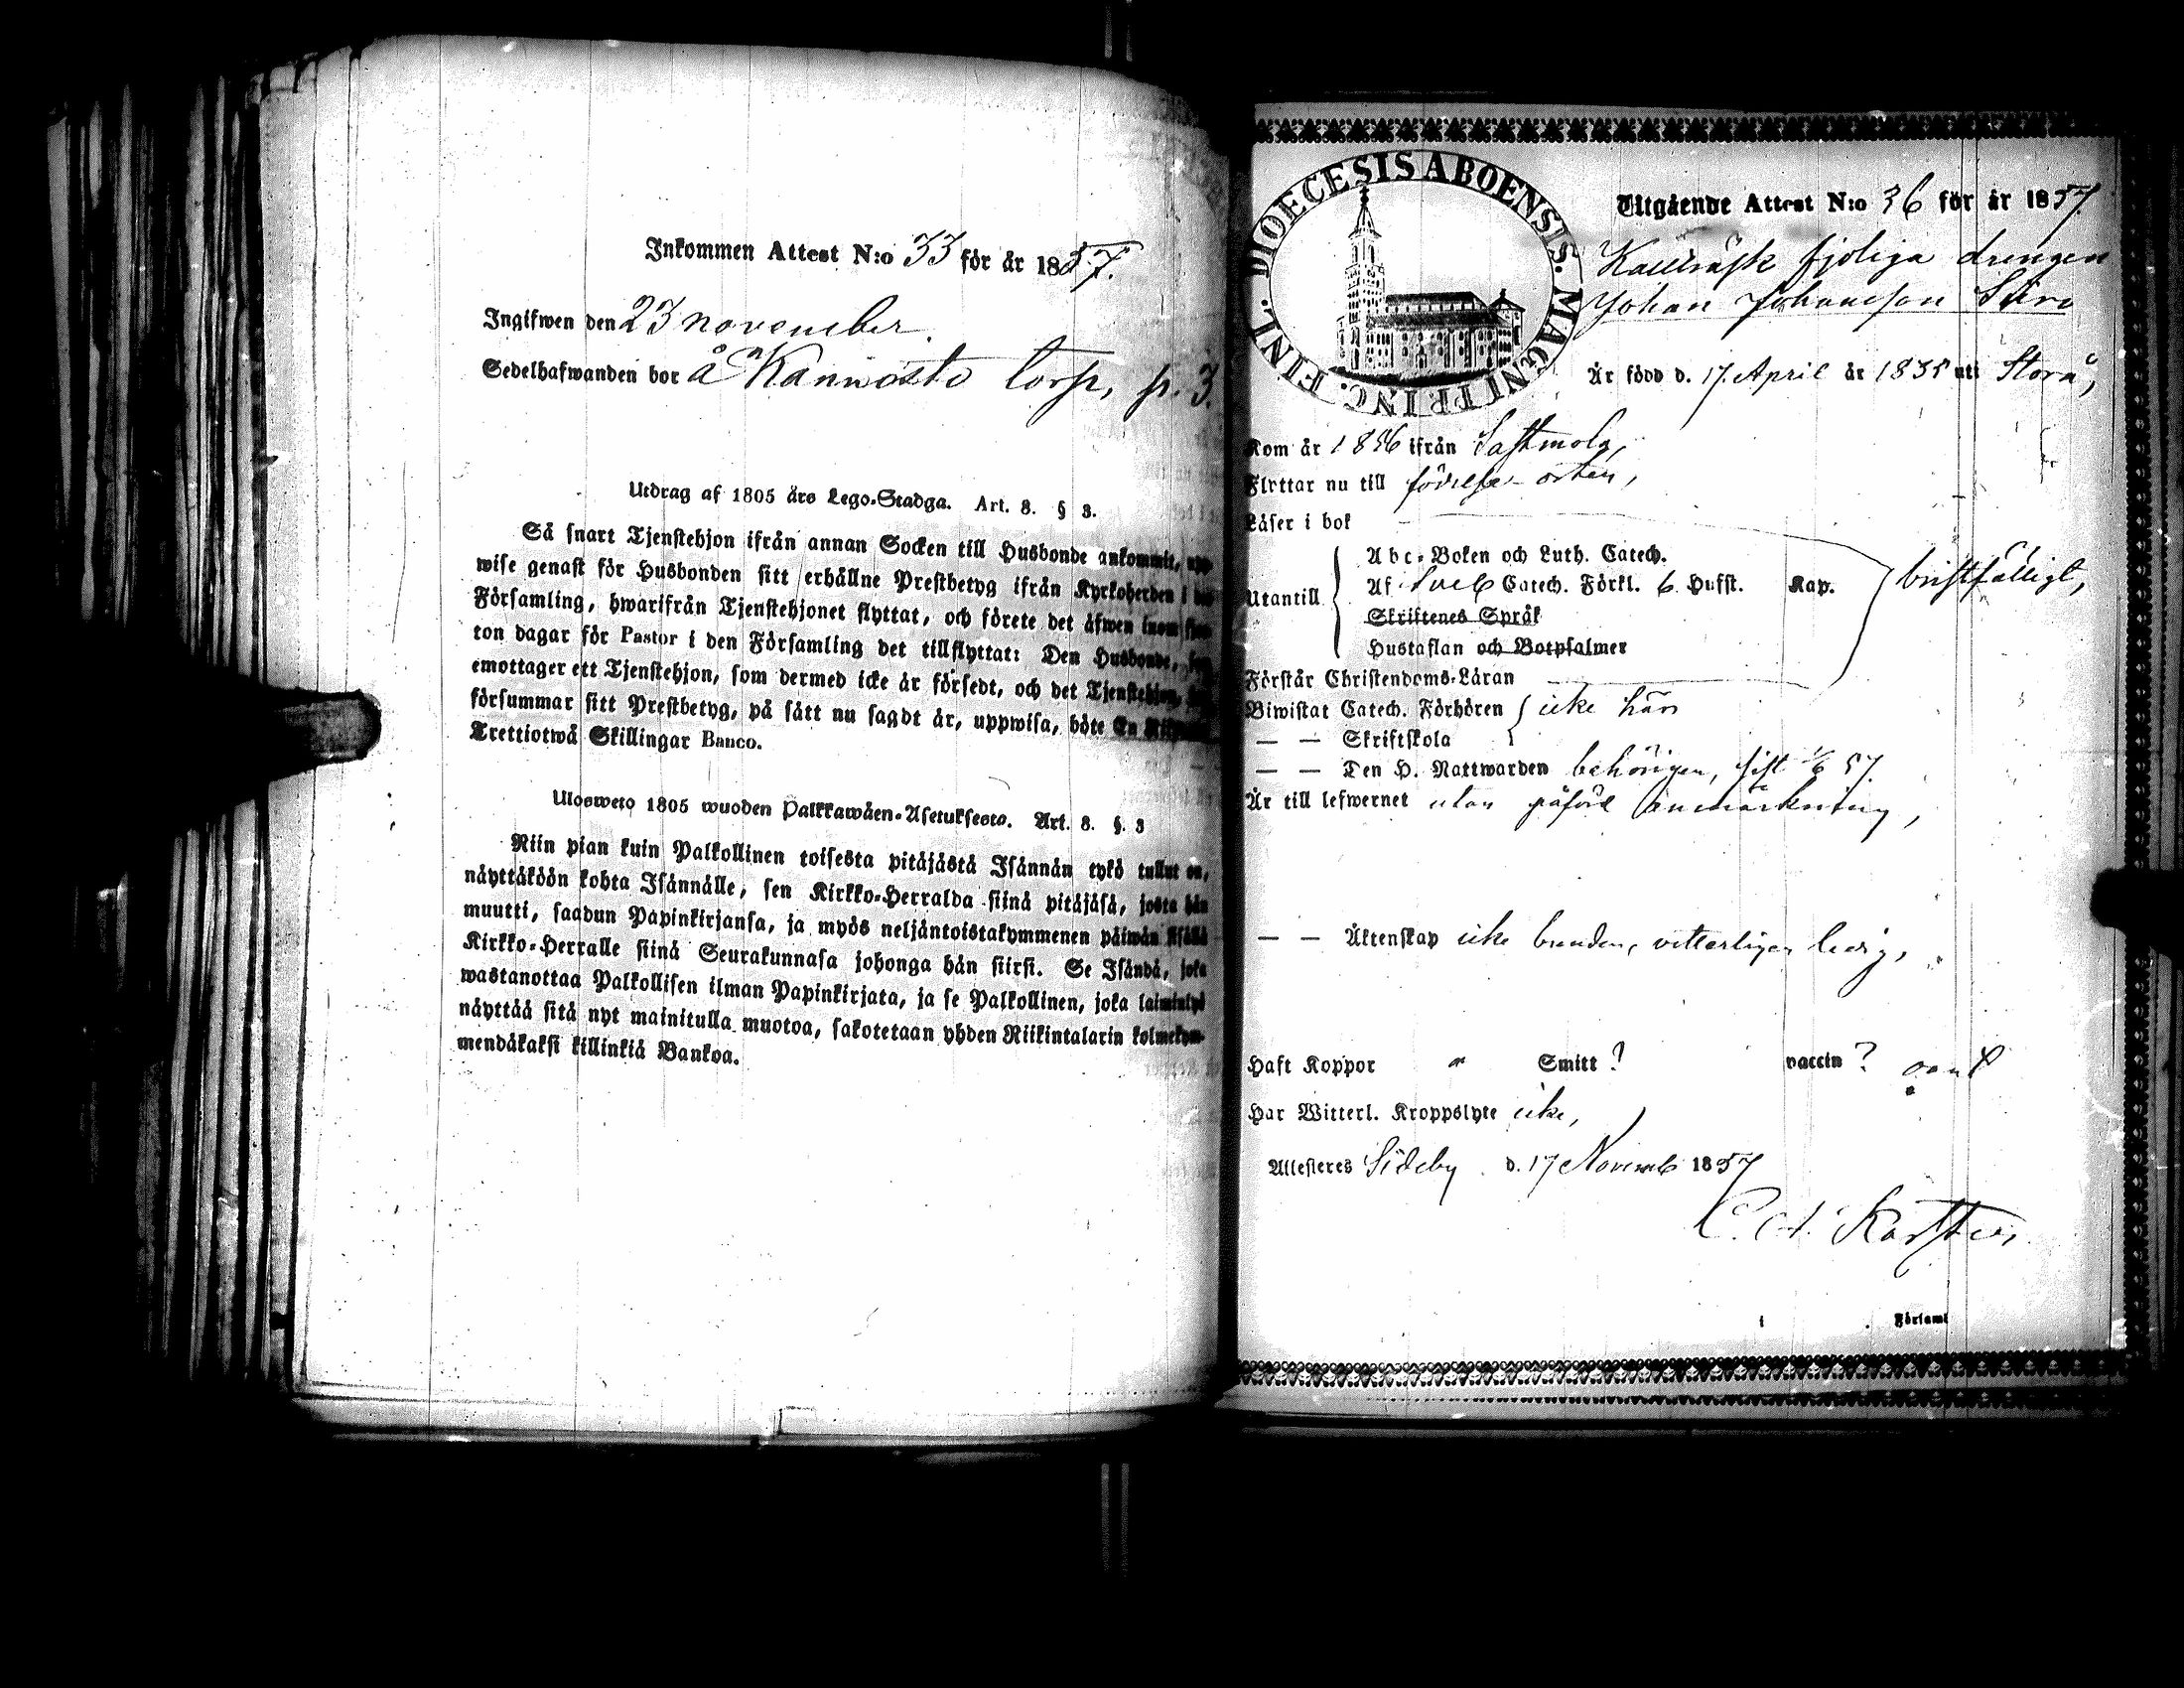 Inkommen Attest N:o 33 för år 1857.
Ingifwen den 23 november.
Sedelhafwanden bor å Kannosto torp, p. 3.
Utdrag af 1805 års Lego-Stadga. Art. 8. § 3.
Så snart Tjenstehjon ifrån annan Socken till Husbonde ankommit, upp-
wise genast för Husbonden sitt erhållne Prestbetyg ifrån Kyrkoherden i
Församling, hwarifrån Tjenstehjonet flyttat, och förete det äfwen inom
ton dagar för Pastor i den Församling det tillflyttat: Den Husbonde,
emottager ett Tjenstehjon, som dermed icke är försedt, och det Tjenstehjon,
försummar sitt Prestbetyg, på sätt nu sagdt är, uppwisa, böte En
Trettiotwå Skillingar Banco.
Ulosweto 1805 wuoden Palkkawäen-Asetuksesta. Art. 8. §. 3
Niin pian kuin Palkollinen toisesta pitäjästä Isännän tykö tullut on,
näyttäköön kohta Isännälle, sen Kirkko-Herralda siinä pitäjäsä, josta hän
muutti, saadun Papinkirjansa, ja myös neljäntoistakymmenen päiwän sisällä
Kirkko-Herralle siinä Seurakunnasa johonga hän siirsi. Se Isändä, joka
wastanottaa Palkollisen ilman Papinkirjata, ja se Palkollinen, joka laiminlyö
näyttää sitä nyt mainitulla muotoa, sakotetaan yhden Riikintalarin kolmekym-
mendäkaksi killinkiä Bankoa.
DIOECESIS ABOENSIS. MAGNI PRINC. FINL.
Utgående Attest N:o 36 för år 1857.
drengen
Johan Johansson
Är född d. 17. April år 1835 uti Storå,
Kom år 1856 ifrån Sastmola,
Flyttar nu till födelse-orten,
Läser i bok
Abc-Boken och Luth. Catech.
Utantill Af Sveb Catech. Förkl. 6 Hufst. Kap. bristfälligt,
Skriftenes Språk
Hustaflan och Botpsalmer
Förstår Christendoms-Läran
Biwistat Catech. Förhören icke här
— — Skriftskola
— — Den H. Nattwarden behörigen, sist 1/6 57.
Är till lefwernet utan påförd anmärkning,
— — Äktenskap icke bunden, vitterligen ledig,
Haft Koppor " Smitt ? vaccin ?
Har Witterl. Kroppslyte icke,
Attesteres Sideby d. 17 Novemb 1857
Karsten
i Församl